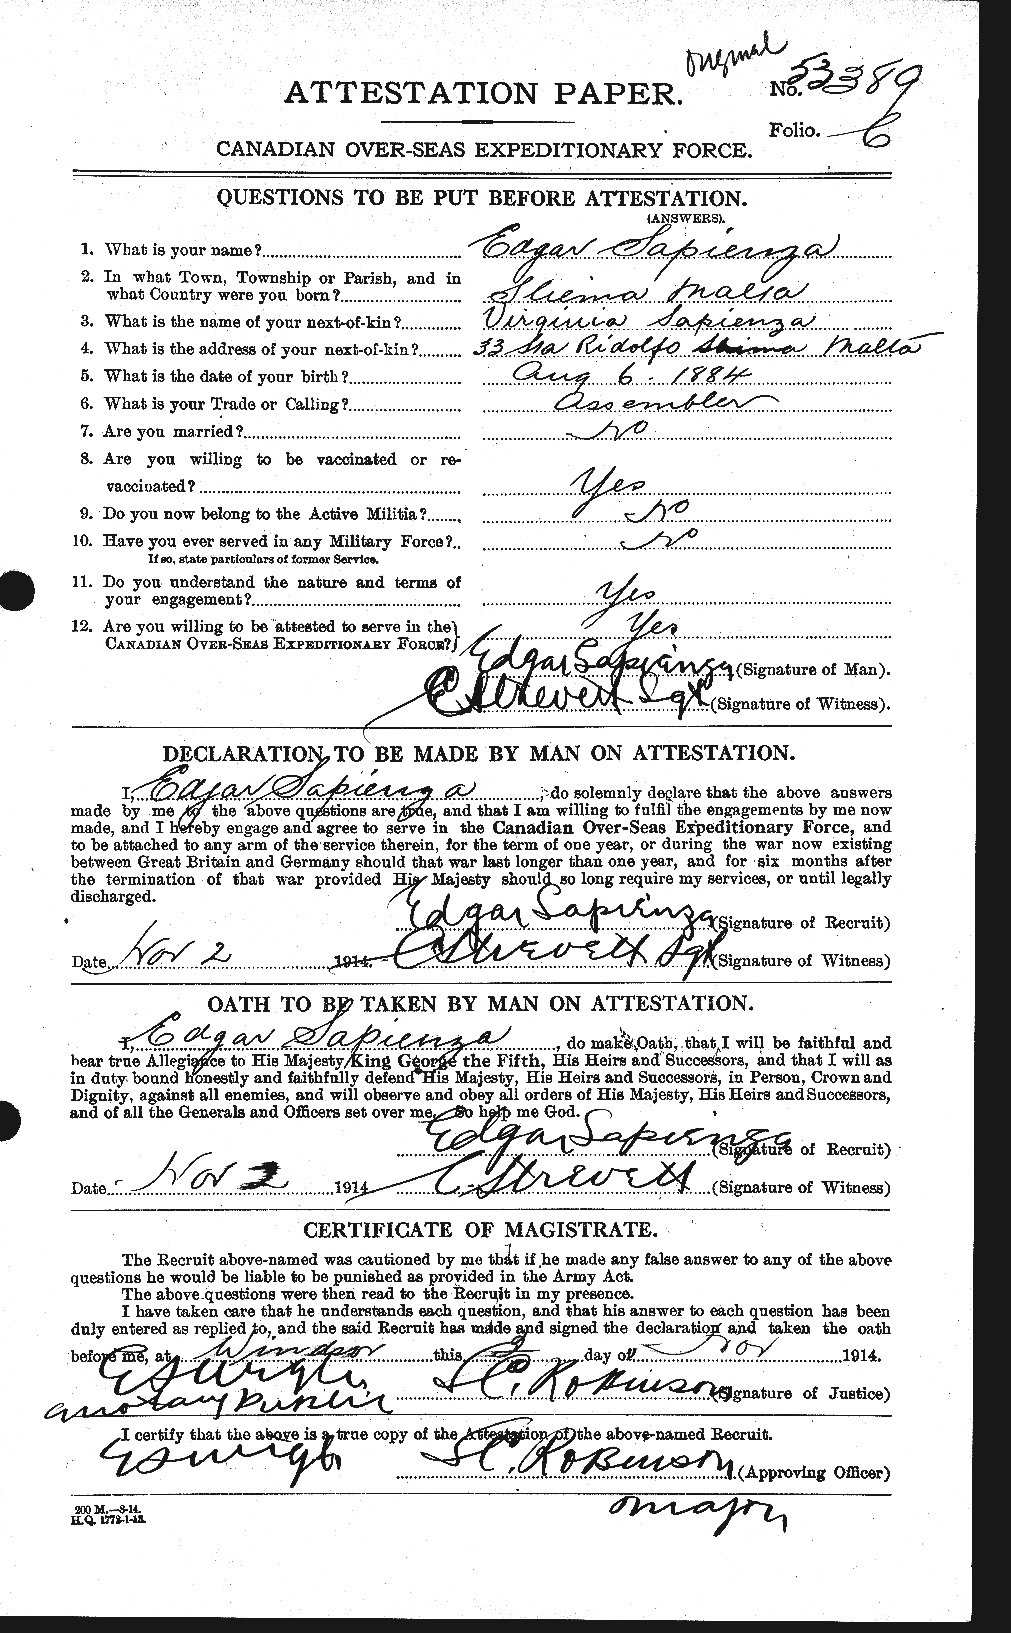 Original
ATTESTATION PAPER.
No. 53389
Folio. 6
CANADIAN OVER-SEAS EXPEDITIONARY FORCE.
QUESTIONS TO BE PUT BEFORE ATTESTATION.
(ANSWERS).
1. What is your name? Edgar Sapienza
2. In what Town, Township or Parish, and in
what Country were you born? Sliema Malta
3. What is the name of your next-of-kin? Virginia Sapienza
4. What is the address of your next-of-kin? 33 Sda Ridolfo Malta
5. What is the date of your birth? Aug 6. 1884
6. What is your Trade or Calling? Assembler
7. Are you married? No
8. Are you willing to be vaccinated or re-
vaccinated? Yes
9. Do you now belong to the Active Militia? No
10. Have you ever served in any Military Force? No
If so, state particulars of former Service.
11. Do you understand the nature and terms of
your engagement? Yes
12. Are you willing to be attested to serve in the
CANADIAN OVER-SEAS EXPEDITIONARY FORCE? Yes
Edgar Sapienza (Signature of Man).
C Strevett Sgt (Signature of Witness).
DECLARATION TO BE MADE BY MAN ON ATTESTATION.
I, Edgar Sapienza, do solemnly declare that the above answers
made by me to the above questions are true, and that I am willing to fulfil the engagements by me now
made, and I hereby engage and agree to serve in the Canadian Over-Seas Expeditionary Force, and
to be attached to any arm of the service therein, for the term of one year, or during the war now existing
between Great Britain and Germany should that war last longer than one year, and for six months after
the termination of that war provided His Majesty should so long require my services, or until legally
discharged.
Edgar Sapienza (Signature of Recruit)
Date Nov 2 1914. C Strevett Sgt (Signature of Witness)
OATH TO BE TAKEN BY MAN ON ATTESTATION.
I, Edgar Sapienza, do make Oath, that I will be faithful and
bear true Allegiance to His Majesty King George the Fifth, His Heirs and Successors, and that I will as
in duty bound honestly and faithfully defend His Majesty, His Heirs and Successors, in Person, Crown and
Dignity, against all enemies, and will observe and obey all orders of His Majesty, His Heirs and Successors,
and of all the Generals and Officers set over me. So help me God.
Edgar Sapienza (Signature of Recruit)
Date Nov 2 1914 C. Strevett (Signature of Witness)
CERTIFICATE OF MAGISTRATE.
The Recruit above-named was cautioned by me that if he made any false answer to any of the above
questions he would be liable to be punished as provided in the Army Act.
The above questions were then read to the Recruit in my presence.
I have taken care that he understands each question, and that his answer to each question has been
duly entered as replied to, and the said Recruit has made and signed the declaration and taken the oath
before me, at Windsor this 2 day of Nov 1914.
E S Wigle S C. Robinson (Signature of Justice)
a Notary Public
I certify that the above is a true copy of the Attestation of the above-named Recruit.
E S Wigle S C. Robinson (Approving Officer)
Major
200 M.—8-14.
H.Q. 1772-1-13.